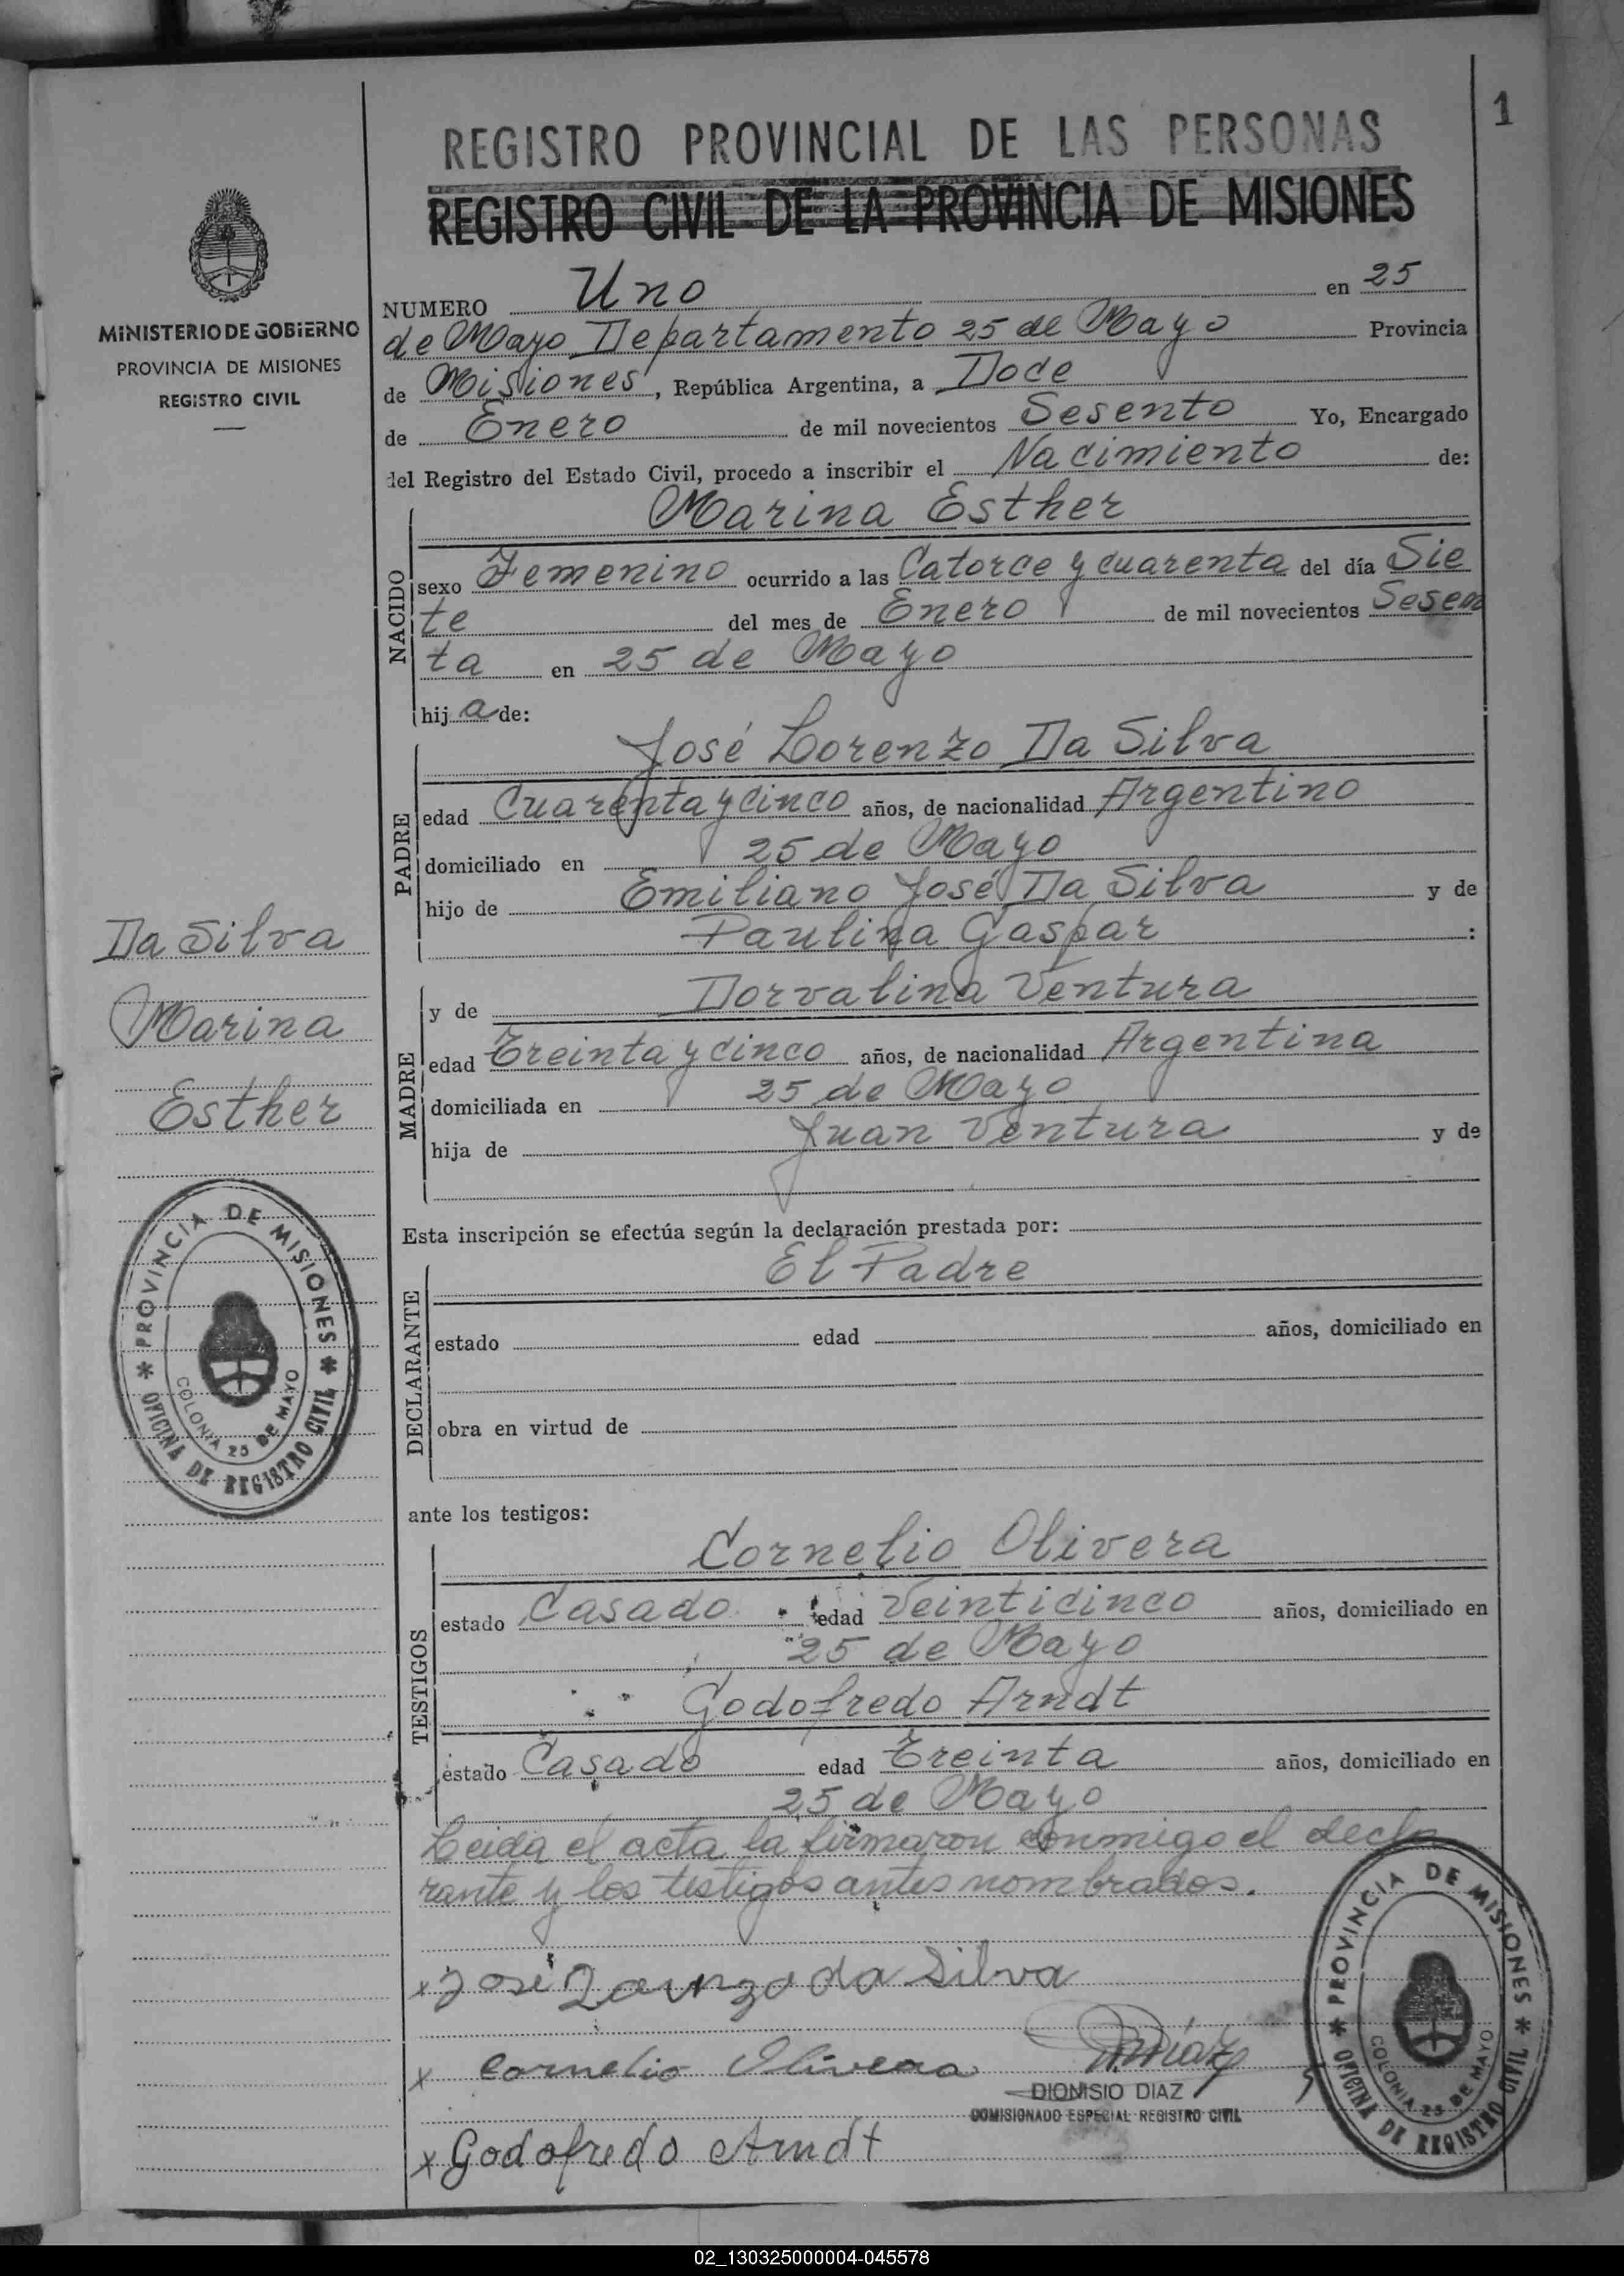 1
REGISTRO PROVINCIAL DE LAS PERSONAS
REGISTRO CIVIL DE LA PROVINCIA DE MISIONES
MINISTERIO DE GOBIERNO
PROVINCIA DE MISIONES
REGISTRO CIVIL
NUMERO Uno en 25
de Mayo Departamento 25 de Mayo Provincia
de Misiones, República Argentina, a Doce
de Enero de mil novecientos Sesento Yo, Encargado
del Registro del Estado Civil, procedo a inscribir el Nacimiento de:
NACIDO
Marina Esther
sexo Femenino ocurrido a las Catorce y cuarenta del día Sie
te del mes de Enero de mil novecientos Sesen
ta en 25 de Mayo
hij a de:
PADRE
José Lorenzo Da Silva
edad Cuarenta y cinco años, de nacionalidad Argentino
domiciliado en 25 de Mayo
hijo de Emiliano José Da Silva y de
Paulina Gaspar :
MADRE
y de Dorvalina Ventura
edad Treinta y cinco años, de nacionalidad Argentina
domiciliada en 25 de Mayo
hija de Juan Ventura y de
Da Silva
Marina
Esther
PROVINCIA DE MISIONES
COLONIA 25 DE MAYO
OFICINA DE REGISTRO CIVIL
Esta inscripción se efectúa según la declaración prestada por:
DECLARANTE
El Padre
estado edad años, domiciliado en
obra en virtud de
ante los testigos:
TESTIGOS
Cornelio Olivera
estado Casado edad Veinticinco años, domiciliado en
25 de Mayo
Godofredo Arndt
estado Casado edad Treinta años, domiciliado en
25 de Mayo
Leida el acta la firmaron conmigo el decla
rante y los testigos antes nombrados.
x José Lorenzo da Silva
x Cornelio Olivera
DIONISIO DIAZ
COMISIONADO ESPECIAL REGISTRO CIVIL
x Godofredo Arndt
PROVINCIA DE MISIONES
COLONIA 25 DE MAYO
OFICINA DE REGISTRO CIVIL
02_130325000004-045578